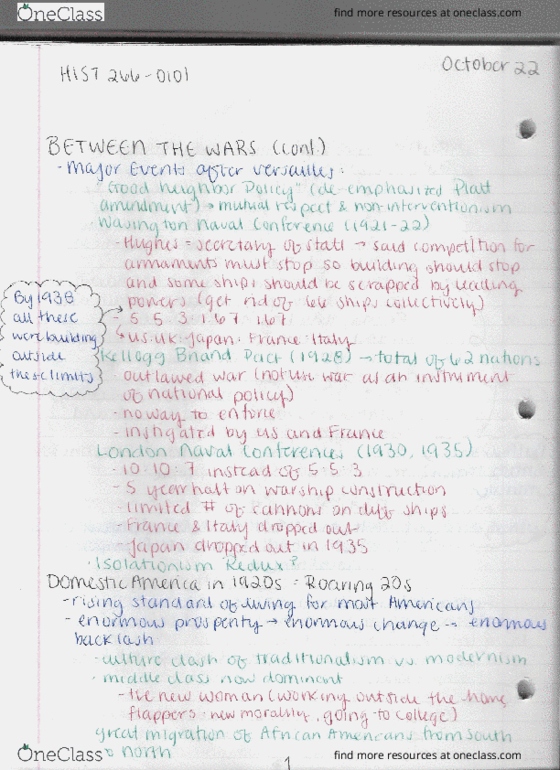 OneClass
find more resources at oneclass.com
HIST 266-0101
October 22
BETWEEN THE WARS (cont.)
- Major Events after Versailles:
"Good Neighbor Policy" (de-emphasized Platt
amendment) → mutual respect & non-interventionism
Wasington Naval Conference (1921-22)
- Hughes = secretary of state → said competition for
armaments must stop so building should stop
and some ships should be scrapped by leading
powers (get rid of 66 ships collectively)
- 5:5:3:1.67:1.67
↳ US:UK:Japan:France:Italy
By 1938
all these
were building
outside
these limits
Kellogg Briand Pact (1928) → total of 62 nations
- outlawed war (not use war as an instrument
of national policy)
- no way to enforce
- instigated by US and France
London Naval Conferences (1930, 1935)
- 10:10:7 instead of 5:5:3
- 5 year halt on warship construction
- limited # of cannons on diff ships
- France & Italy dropped out
- Japan dropped out in 1935
· Isolationism Redux?
Domestic America in 1920s = Roaring 20s
- rising standard of living for most Americans
- enormous prosperity → enormous change → enormous
backlash
· culture clash of traditionalism vs modernism
· middle class now dominant
- the new woman (working outside the home,
flappers: new morality, going to college)
great migration of African Americans from South
to North
1
OneClass
find more resources at oneclass.com